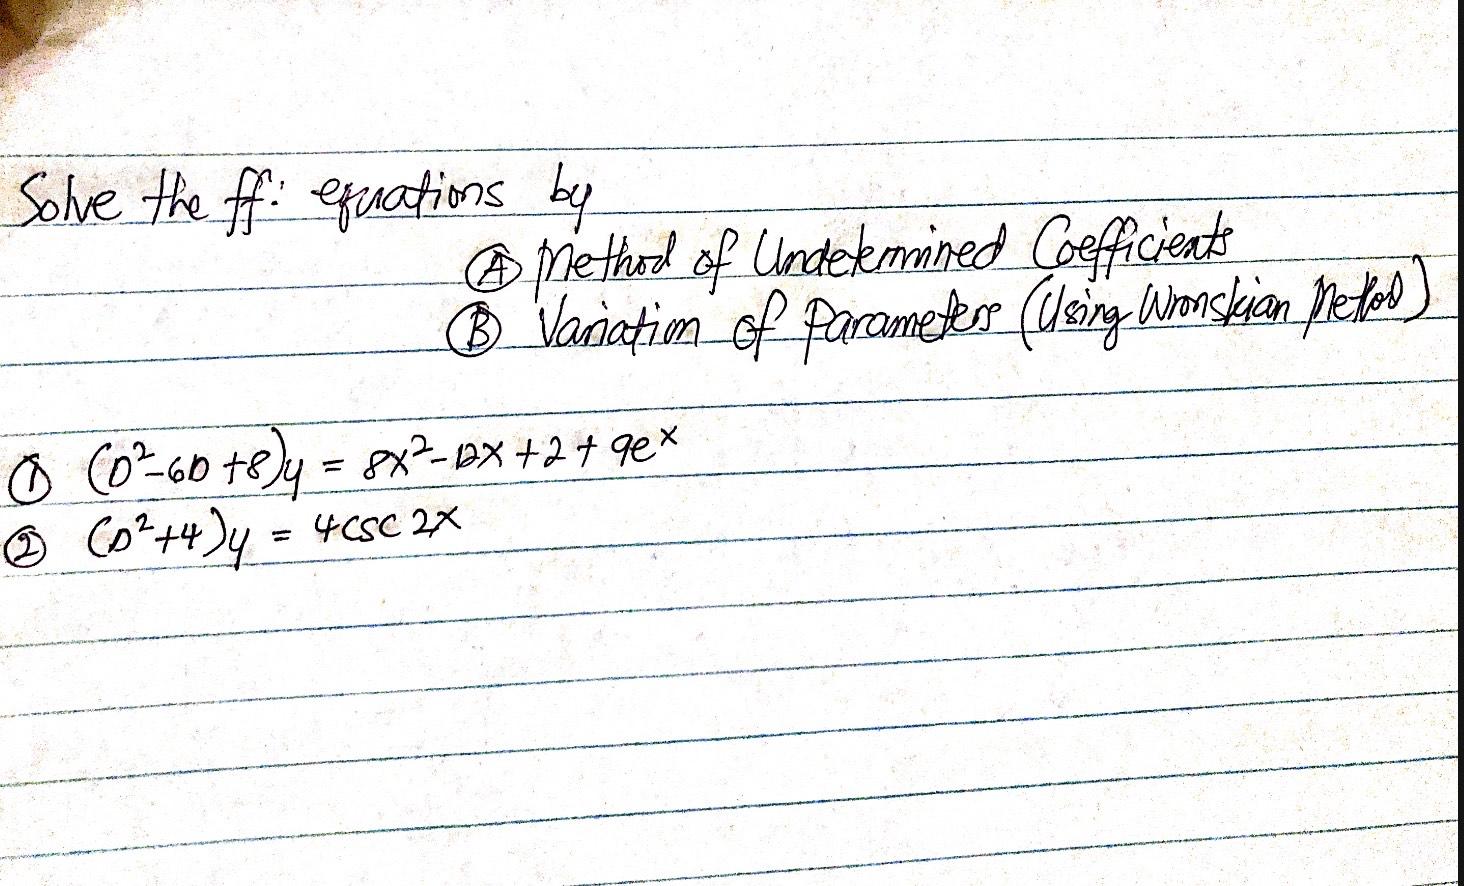 Solve the ff: equations by
Ⓐ Method of Undetermined Coefficients
Ⓑ Variation of Parameters (Using Wronskian Method)
① (D²-6D+8)y = 8x²-12x+2+9eˣ
② (D²+4)y = 4csc2x